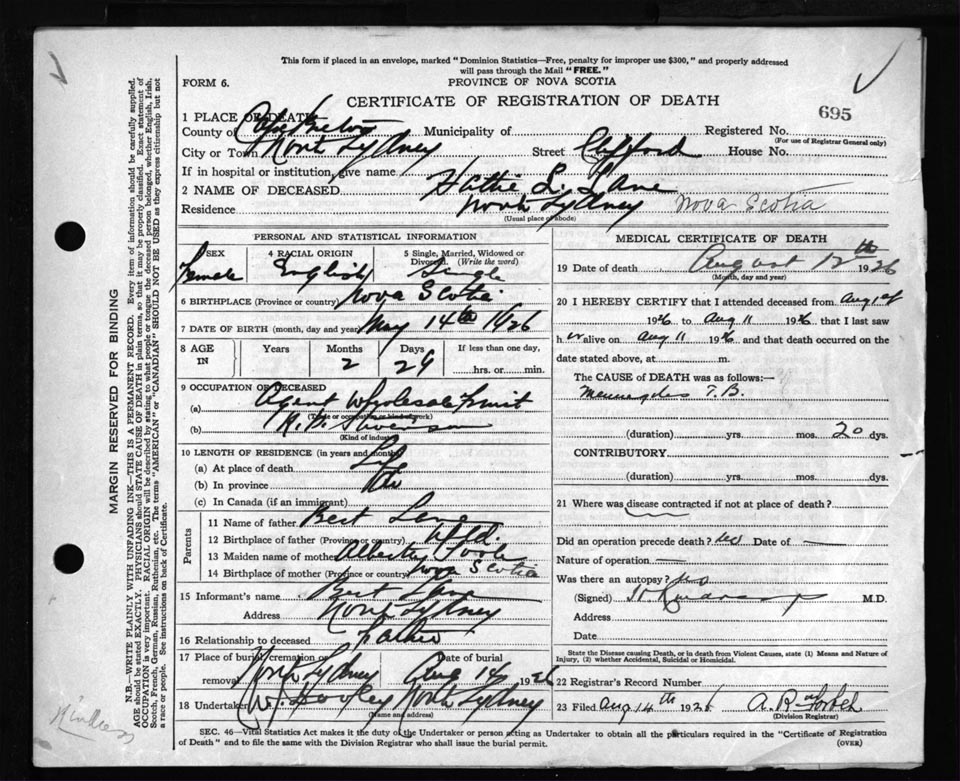 This form if placed in an envelope, marked "Dominion Statistics—Free, penalty for improper use $300," and properly addressed
will pass through the Mail "FREE."
FORM 6.
PROVINCE OF NOVA SCOTIA
CERTIFICATE OF REGISTRATION OF DEATH
695
1 PLACE OF DEATH
County of Cape Breton Municipality of Registered No.
(For use of Registrar General only)
City or Town North Sydney Street Clifford House No.
If in hospital or institution, give name
2 NAME OF DECEASED Hattie L. Lane
Residence North Sydney Nova Scotia
(Usual place of abode)
PERSONAL AND STATISTICAL INFORMATION
SEX Female
4 RACIAL ORIGIN English
5 Single, Married, Widowed or Divorced (Write the word) Single
6 BIRTHPLACE (Province or country) Nova Scotia
7 DATE OF BIRTH (month, day and year) May 14th 1926
8 AGE IN Years Months Days If less than one day,
2 29 hrs. or min.
9 OCCUPATION OF DECEASED
(a) Agent Wholesale Fruit
(Trade or occupation or kind of work)
(b)
(Kind of industry)
10 LENGTH OF RESIDENCE (in years and months)
(a) At place of death Life
(b) In province
(c) In Canada (if an immigrant)
Parents
11 Name of father Bert Lane
12 Birthplace of father (Province or country) Nfld.
13 Maiden name of mother Alberta Poole
14 Birthplace of mother (Province or country) Nova Scotia
15 Informant's name Bert Lane
Address North Sydney
16 Relationship to deceased Father
17 Place of burial, cremation or removal North Sydney Date of burial Aug 1926
18 Undertaker W. Dooley North Sydney
(Name and address)
MEDICAL CERTIFICATE OF DEATH
19 Date of death August 12th 1926
(Month, day and year)
20 I HEREBY CERTIFY that I attended deceased from Aug 1st
1926 to Aug 11 1926 that I last saw
h er alive on Aug 11 1926 and that death occurred on the
date stated above, at m.
The CAUSE of DEATH was as follows:—
T.B.
(duration) yrs. mos. 20 dys.
CONTRIBUTORY
(duration) yrs. mos. dys.
21 Where was disease contracted if not at place of death?
Did an operation precede death? no Date of —
Nature of operation —
Was there an autopsy? no
(Signed) M.D.
Address
Date
State the Disease causing Death, or in death from Violent Causes, state (1) Means and Nature of
Injury, (2) whether Accidental, Suicidal or Homicidal.
22 Registrar's Record Number
23 Filed Aug 14th 1926 A. R. Forbes
(Division Registrar)
SEC. 46—Vital Statistics Act makes it the duty of the Undertaker or person acting as Undertaker to obtain all the particulars required in the "Certificate of Registration
of Death" and to file the same with the Division Registrar who shall issue the burial permit.
(OVER)
MARGIN RESERVED FOR BINDING
N.B.—WRITE PLAINLY WITH UNFADING INK—THIS IS A PERMANENT RECORD. Every item of information should be carefully supplied.
AGE should be stated EXACTLY. PHYSICIANS should STATE CAUSE OF DEATH in plain terms, so that it may be properly classified. Exact statement of
OCCUPATION is very important. RACIAL ORIGIN will be described by stating to what people or tongue the deceased person belonged, whether English, Irish,
Scotch, French, German, Russian, Ruthenian, etc. The terms "AMERICAN" or "CANADIAN" SHOULD NOT BE USED as they express citizenship but not
a race or people. See instructions on back of Certificate.